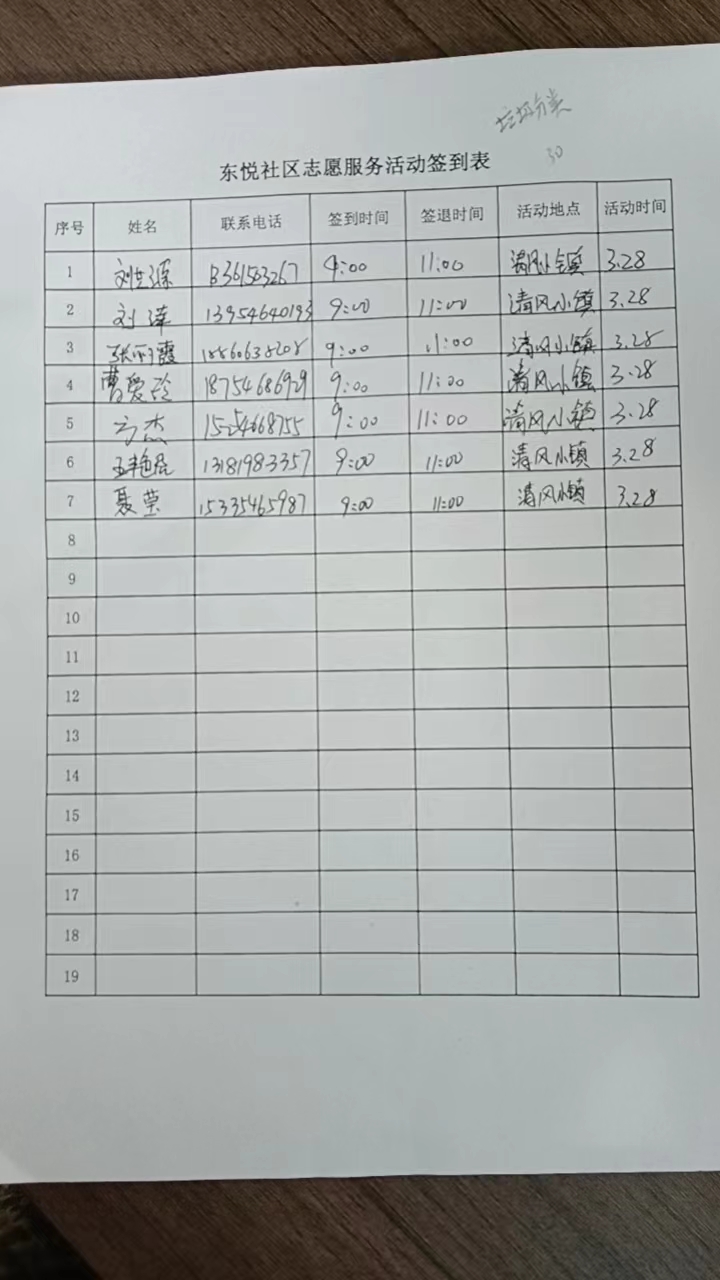 垃圾分类
30
东悦社区志愿服务活动签到表
序号 姓名 联系电话 签到时间 签退时间 活动地点 活动时间
1 9:00 11:00 清风小镇 3.28
2 刘萍 13954640193 9:00 11:00 清风小镇 3.28
3 张丽霞 18560638208 9:00 11:00 清风小镇 3.28
4 曹爱玲 18754686929 9:00 11:00 清风小镇 3.28
5 方杰 15254668755 9:00 11:00 清风小镇 3.28
6 13181983357 9:00 11:00 清风小镇 3.28
7 聂莹 15335465987 9:00 11:00 清风小镇 3.28
8
9
10
11
12
13
14
15
16
17
18
19